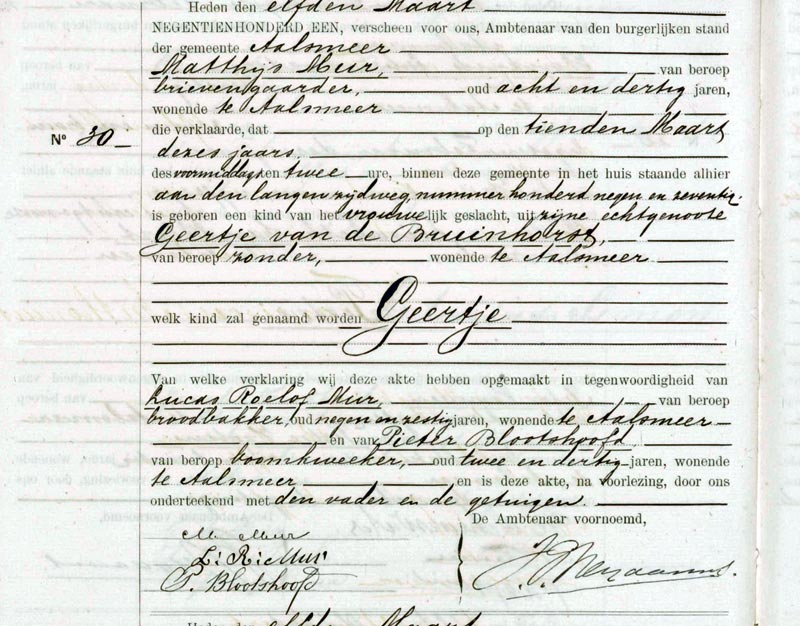 Heden den elfden Maart
NEGENTIENHONDERD EEN, verscheen voor ons, Ambtenaar van den burgerlijken stand
der gemeente Aalsmeer
Matthijs Mur, van beroep
brievengaarder, oud acht en dertig jaren,
wonende te Aalsmeer
die verklaarde, dat op den tienden Maart
No 30 dezes jaars,
des voormiddags ten twee ure, binnen deze gemeente in het huis staande alhier
aan den langen zijdweg, nummer honderd negen en zeventig.
is geboren een kind van het vrouwelijk geslacht, uit zijne echtgenoote
Geertje van de Bruinhorst,
van beroep zonder, wonende te Aalsmeer
welk kind zal genaamd worden Geertje
Van welke verklaring wij deze akte hebben opgemaakt in tegenwoordigheid van
Lucas Roelof Mur, van beroep
broodbakker, oud negen en zestig jaren, wonende te Aalsmeer
en van Pieter Blootshoofd
van beroep boomkweeker, oud twee en dertig jaren, wonende
te Aalsmeer en is deze akte, na voorlezing, door ons
onderteekend met den vader en de getuigen.
De Ambtenaar voornoemd,
M. Mur
L: R: Mur
P. Blootshoofd
elfden Maart